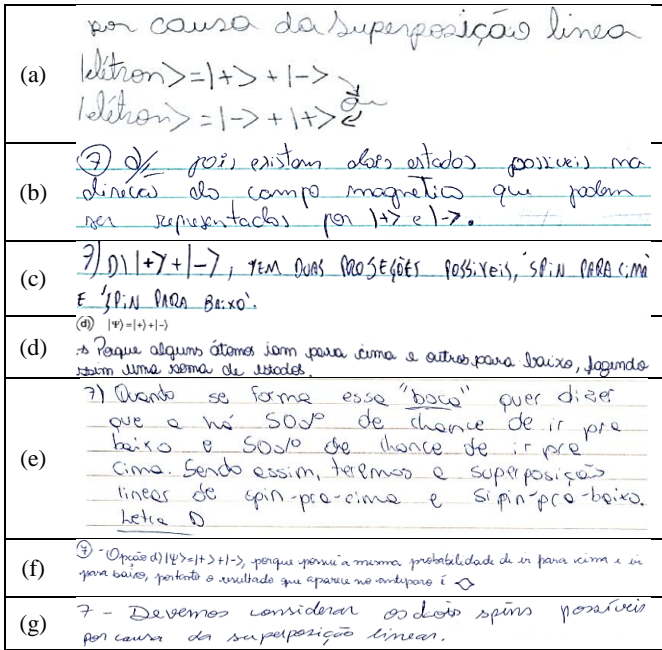 (a)
por causa da superposição linea
|elétron> = |+> + |->
|elétron> = |-> + |+>
ou
(b)
7 d) pois existem dois estados possíveis na
direção do campo magnético que podem
ser representados por |+> e |->.
(c)
7) D) |+> + |->, TEM DUAS PROJEÇÕES POSSÍVEIS, 'SPIN PARA CIMA'
E 'SPIN PARA BAIXO'.
(d)
(d) |Ψ>=|+>+|->
→ Porque alguns átomos iam para cima e outros para baixo, fazendo
assim uma soma de estados.
(e)
7) Quando se forma essa "boca" quer dizer
que a há 50% de chance de ir pra
baixo e 50% de chance de ir pra
cima. Sendo assim, teremos a superposição
linear de spin-pra-cima e sipin-pra-baixo.
Letra D
(f)
7 - Opção d) |Ψ>=|+>+|->, porque possui a mesma probabilidade de ir para cima e ir
para baixo, portanto o resultado que aparece no anteparo é
(g)
7 - Devemos considerar os dois spins possíveis
por causa da superposição linear.